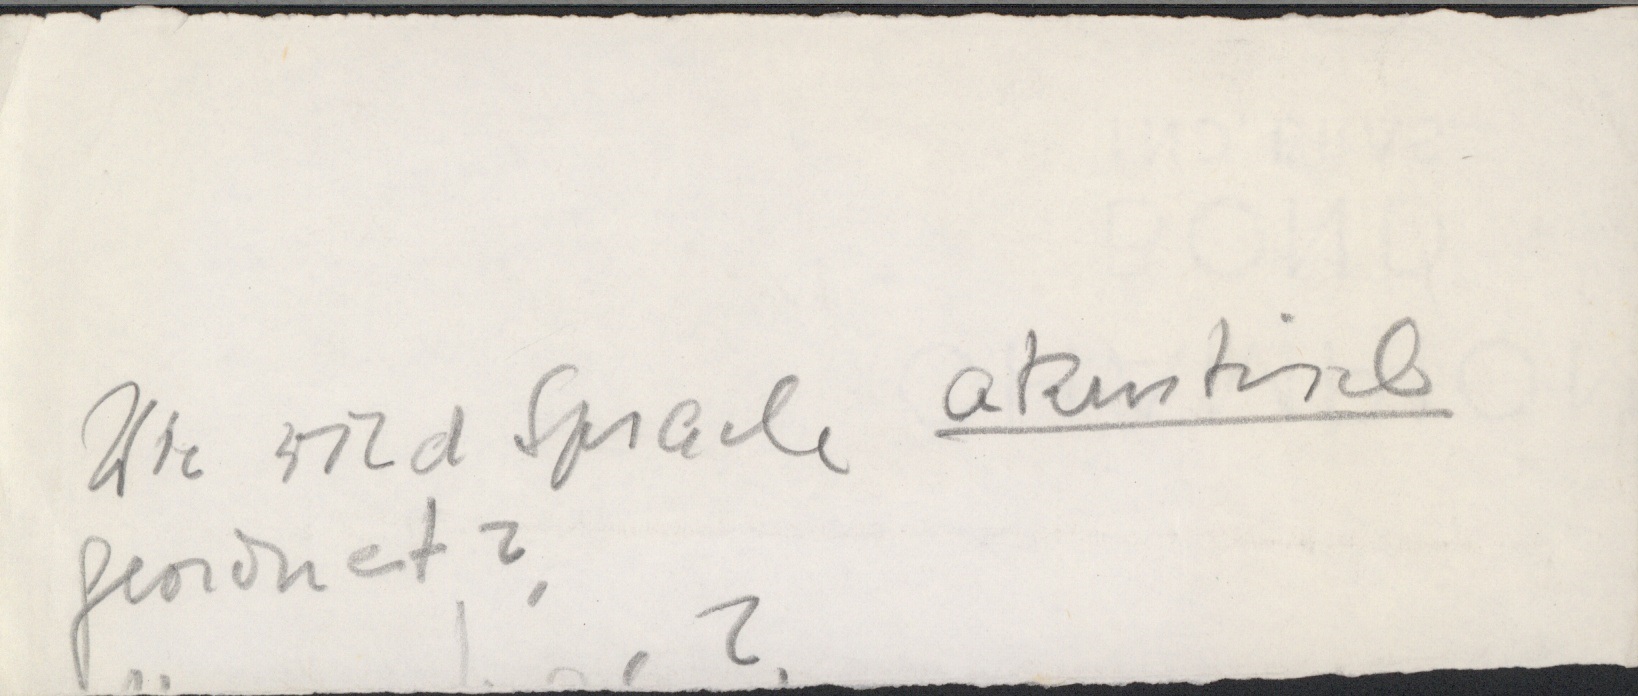 Wie wird Sprache akustisch
geordnet?
?